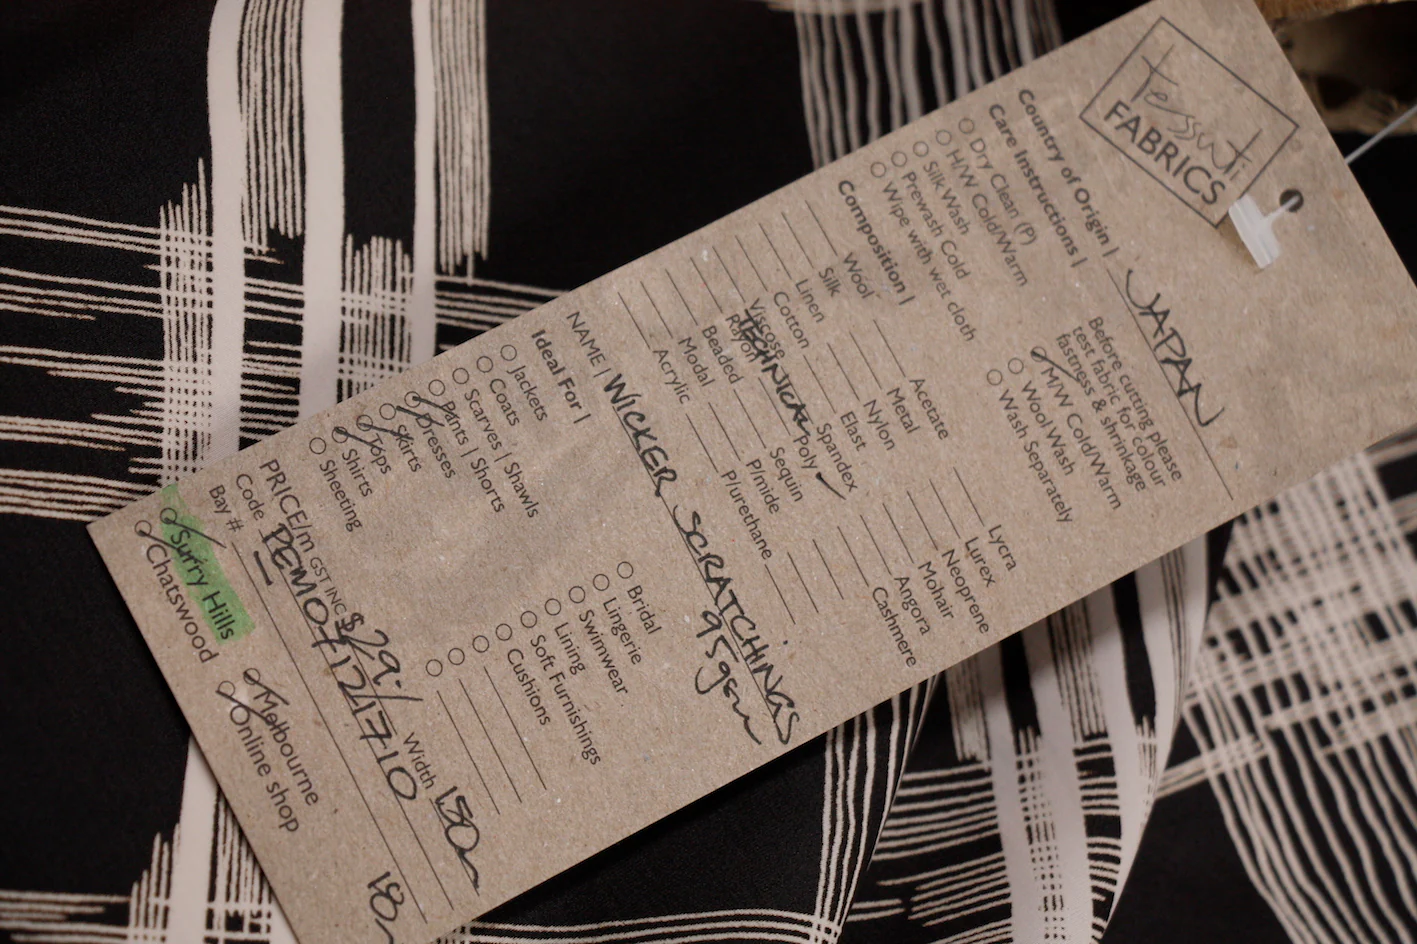 tessuti
FABRICS
Country of Origin | JAPAN
Care Instructions |
Before cutting please
test fabric for colour
fastness & shrinkage
Dry Clean (P)
H/W Cold/Warm
Silk Wash
Prewash Cold
Wipe with wet cloth
M/W Cold/Warm
Wool Wash
Wash Separately
Composition |
Wool
Silk
Linen
Cotton
Viscose
Rayon
Beaded
Modal
Acrylic
Acetate
Metal
Nylon
Elast
Spandex
TECHNICAL Poly ✓
Sequin
P/mide
P/urethane
Lycra
Lurex
Neoprene
Mohair
Angora
Cashmere
NAME | WICKER SCRATCHINGS
95gsm
Ideal For |
Jackets
Coats
Scarves | Shawls
Pants | Shorts
Dresses
Skirts
Tops
Shirts
Sheeting
Bridal
Lingerie
Swimwear
Lining
Soft Furnishings
Cushions
PRICE/m GST INC $29.- Width 150
Code
Bay #
Surry Hills
Chatswood
Melbourne
Online shop